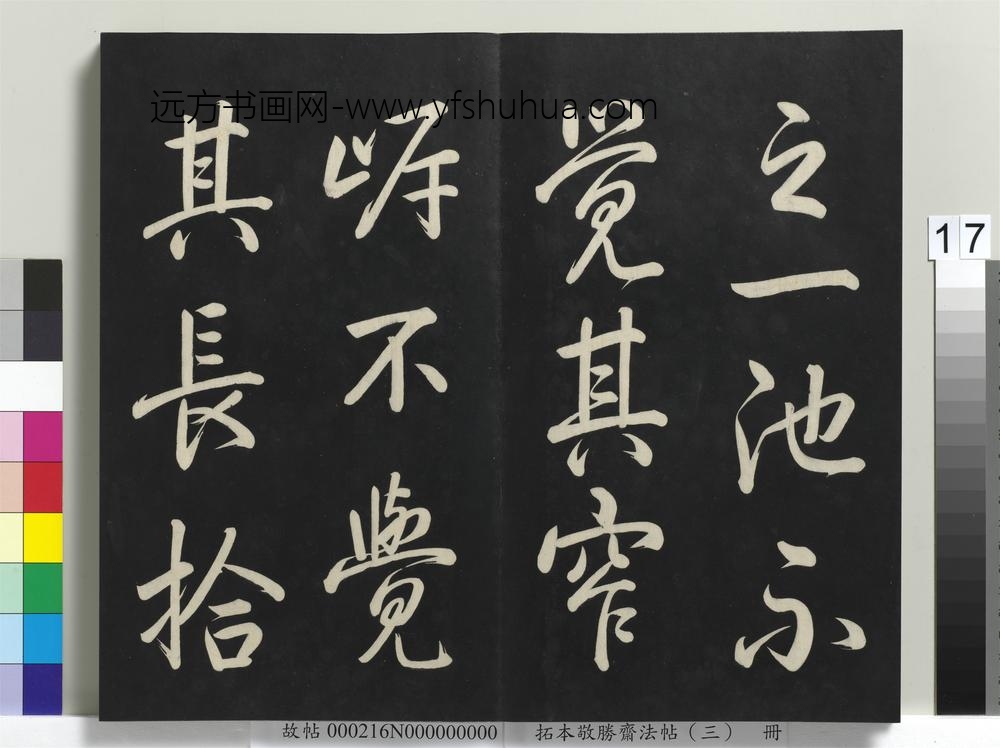 远方书画网-www.yfshuhua.com
之一池不
覺其窄
岸不覺
其長拾
17
故帖 000216N000000000
拓本敬勝齋法帖（三） 冊